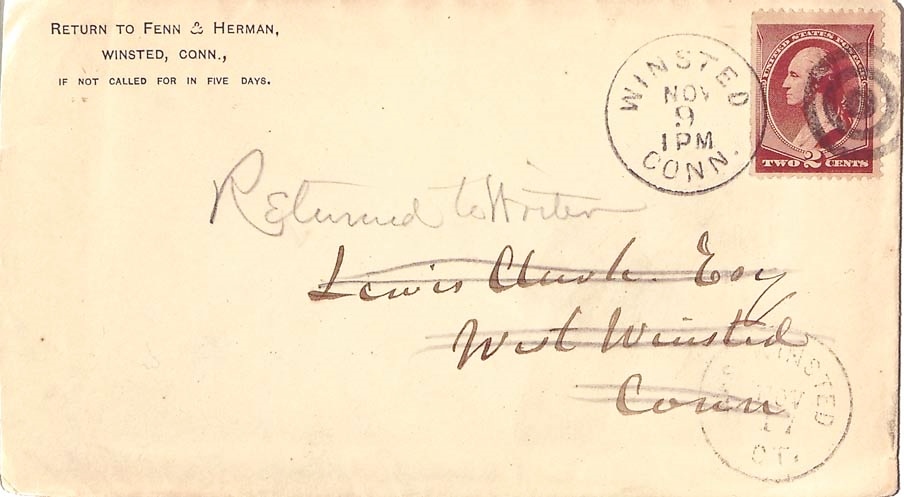 RETURN TO FENN & HERMAN,
WINSTED, CONN.,
IF NOT CALLED FOR IN FIVE DAYS.
WINSTED
NOV
9
1PM
CONN.
UNITED STATES POSTAGE
TWO 2 CENTS
Returned to Writer
Lewis Esq
West Winsted
Conn
WINSTED
NOV
17
CT.